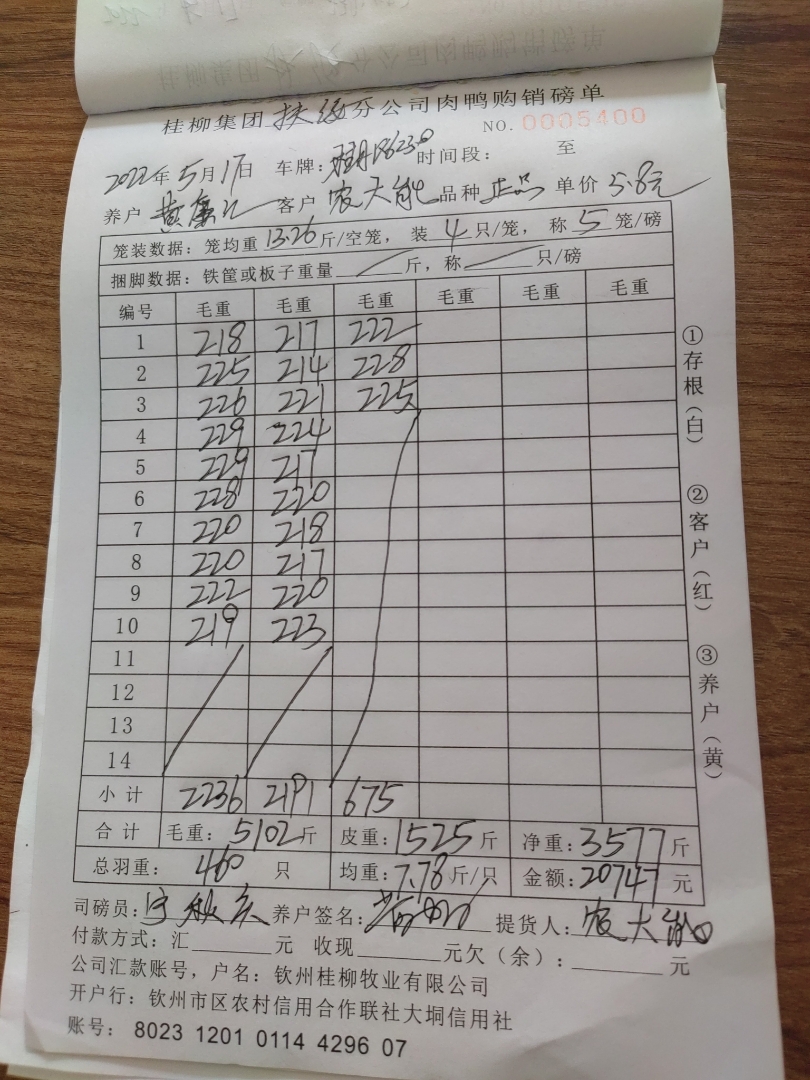 桂柳集团扶绥分公司肉鸭购销磅单
NO. 0005400
2022年5月17日 车牌: 时间段: 至
养户 黄 客户 农大能 品种 正品 单价 5.8元
笼装数据: 笼均重 13.26 斤/空笼, 装 4 只/笼, 称 5 笼/磅
捆脚数据: 铁筐或板子重量 斤, 称 只/磅
编号 毛重 毛重 毛重 毛重 毛重 毛重
1 218 217 222
2 225 214 228
3 226 221 225
4 229 224
5 229 217
6 228 220
7 220 218
8 220 217
9 222 220
10 219 223
11
12
13
14
小计 2236 2191 675
合计 毛重: 5102斤 皮重: 1525斤 净重: 3577斤
总羽重: 460 只 均重: 7.78斤/只 金额: 20747元
司磅员: 养户签名: 提货人: 农大能
付款方式: 汇 元 收现 元欠(余): 元
公司汇款账号, 户名: 钦州桂柳牧业有限公司
开户行: 钦州市区农村信用合作联社大垌信用社
账号: 8023 1201 0114 4296 07
①存根(白) ②客户(红) ③养户(黄)